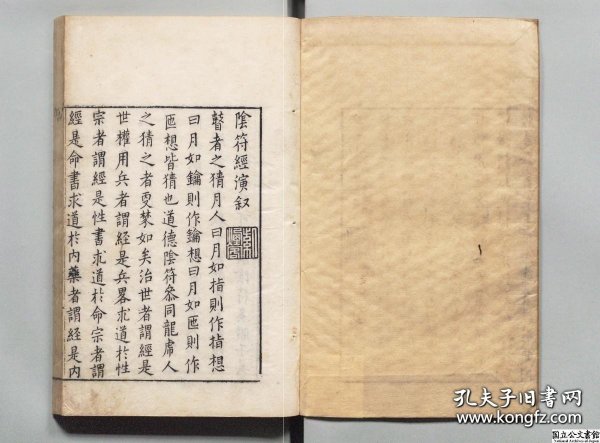 陰符經演叙
瞽者之猜月人曰月如指則作指想
曰月如鑰則作鑰想曰月如匜則作
匜想皆猜也道德陰符叅同龍虎人
之猜之者更棼如矣治世者謂經是
世權用兵者謂經是兵畧求道於性
宗者謂經是性書求道於命宗者謂
經是命書求道於内藥者謂経是内
孔夫子旧书网
www.kongfz.com
国立公文書館
National Archives of Japan